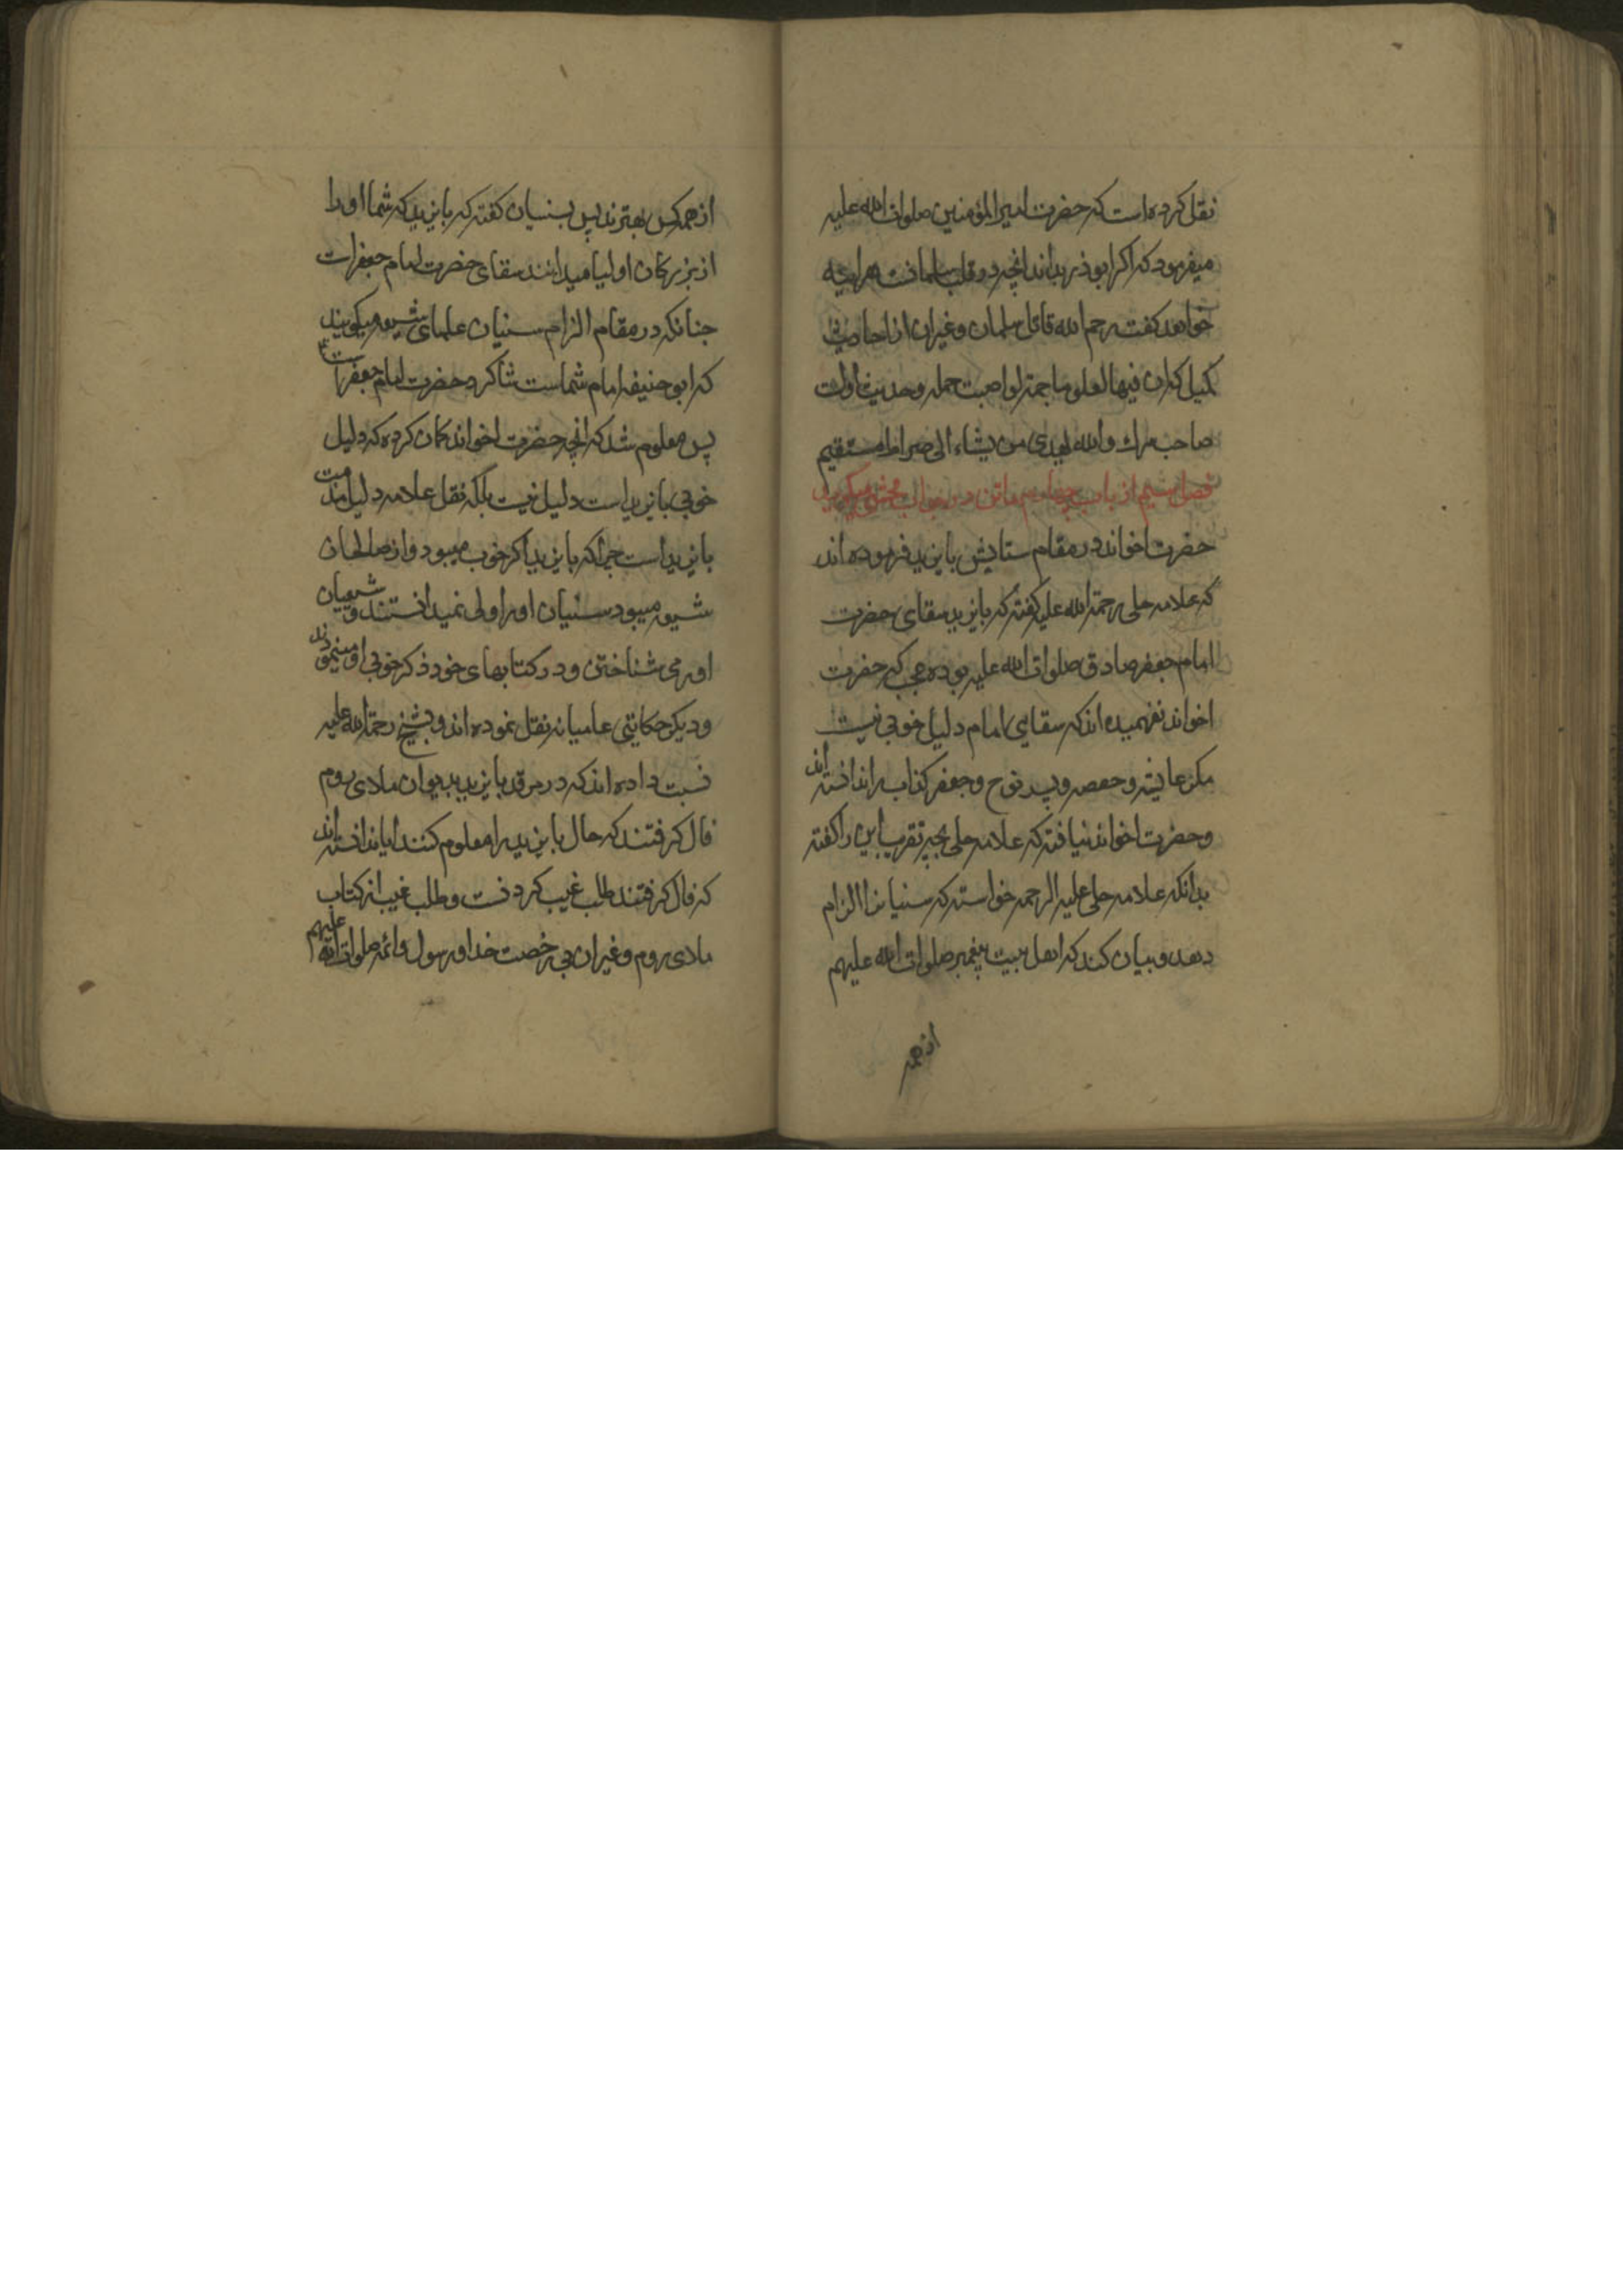 نقل کرده است که حضرت امیرالمؤمنین صلوات الله علیه
میفرمود که اکر ابوذر بداند انچه در قلب سلمانست هراینه
خواهد کفت رحم الله قاتل سلمان و غیر ان از احادیث
کمیل که ان فیها لعلوما جمة لو اصبت حملة و حدیث اولت
صاحب سرك والله یهدی من یشاء الی صراط مستقیم
فصل سیم از باب چهارم ماتن در جواب محشی میکوید
حضرت اخواند در مقام ستایش بایزید فرموده اند
که علامه حلی رحمة الله علیه کفته که بایزید سقای حضرت
امام جعفر صادق صلوات الله علیه بوده عجب که حضرت
اخواند نفهمیده اند که سقایی امام دلیل خوبی نیست
مکر عایشه و حفصه و پسر نوح و جعفر کذاب را ندانسته اند
و حضرت اخواند نیافته که علامه حلی بچه تقریب این را کفته
بدانکه علامه حلی علیه الرحمه خواسته که سنیانرا الزام
دهد و بیان کند که اهل بیت پیغمبر صلوات الله علیهم
از همه
از همه کس بهترند پس بسنیان کفته که بایزید که شما او را
از بزرکان اولیا میدانند سقای حضرت امام جعفر است
جنانکه در مقام الزام سنیان علمای شیعه میکویند
که ابو حنیفه امام شماست شاکرد حضرت امام جعفر است
پس معلوم شد که انچه حضرت اخواند کمان کرده که دلیل
خوبی بایزید است دلیل نیست بلکه نقل علامه دلیل مذمت
بایزید است جرا که بایزید اکر خوب میبود و از صالحان
شیعه میبود سنیان او را ولی نمیدانستند و شیعیان
او را می شناختن و در کتابهای خود ذکر خوبی او مینمودند
و دیکر حکایتی عامیانه نقل نموده اند و بشیخ رحمة الله علیه
نسبت داده اند که در مرقد بایزید بدیوان ملای روم
فال کرفتند که حال بایزید را معلوم کنند ایا ندانسته اند
که فال کرفتند طلب غیب کردنست و طلب غیب از کتاب
ملای روم و غیر ان بی رخصت خدا و رسول و ائمه صلوات الله علیهم